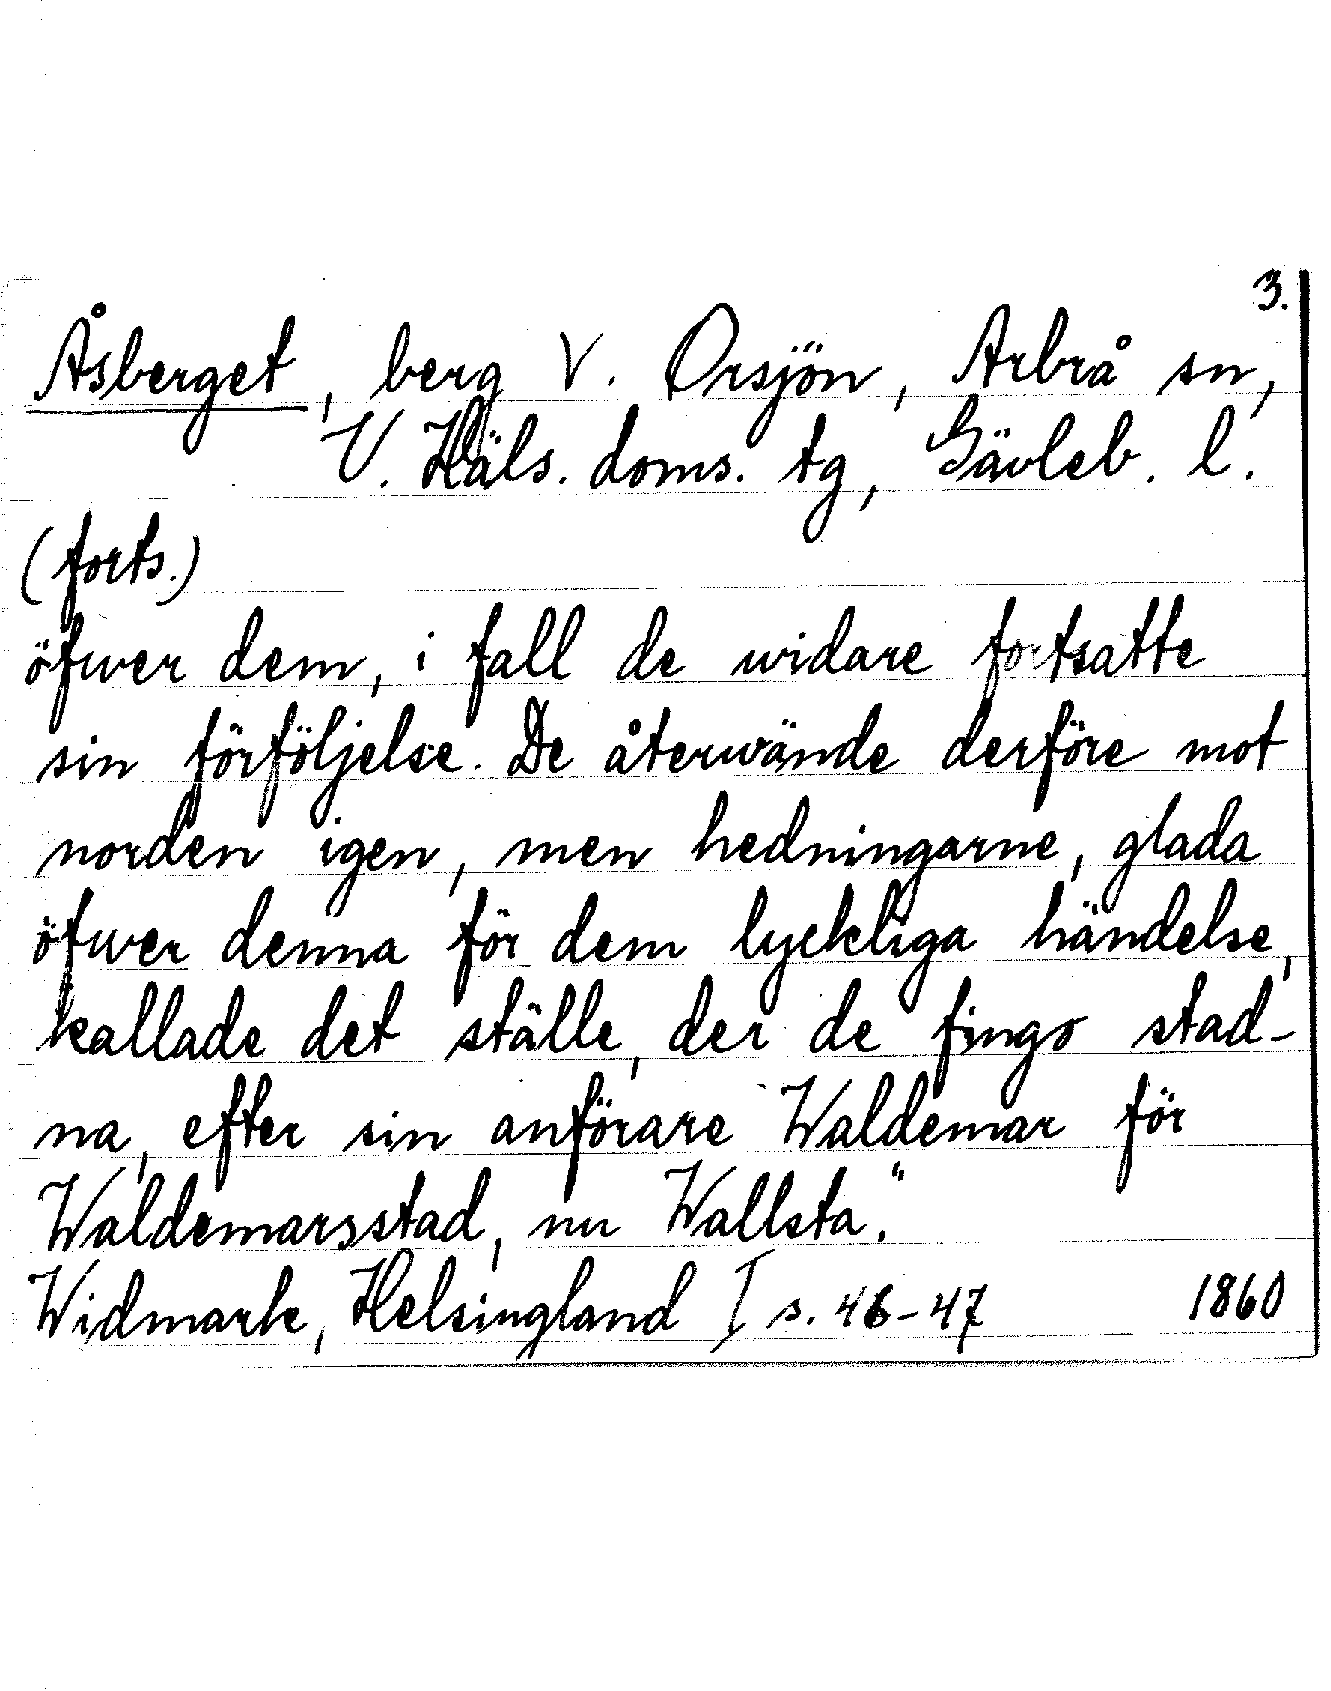 3.
Åsberget, berg V. Orsjön, Arbrå sn,
V. Häls. doms. tg, Gävleb. l.
(forts.)
öfwer dem, i fall de widare fortsatte
sin förföljelse. De återwände derföre mot
norden igen, men hedningarne, glada
öfwer denna för dem lyckliga händelse,
kallade det ställe, der de fingo stad-
na, efter sin anförare Waldemar för
Waldemarsstad, nu Wallsta."
Widmark, Helsingland I s. 46-47 1860